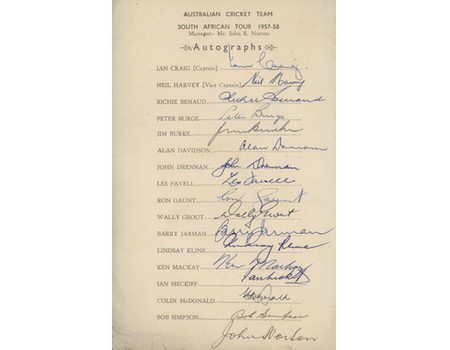 AUSTRALIAN CRICKET TEAM
SOUTH AFRICAN TOUR 1957-58
Manager—Mr. John E. Norton
Autographs
IAN CRAIG [Captain] Ian Craig.
NEIL HARVEY [Vice Captain] Neil Harvey
RICHIE BENAUD Richie Benaud
PETER BURGE Peter Burge
JIM BURKE Jim Burke
ALAN DAVIDSON Alan Davidson
JOHN DRENNAN John Drennan
LES FAVELL Les Favell
RON GAUNT Ron Gaunt
WALLY GROUT Wally Grout
BARRY JARMAN Barry Jarman
LINDSAY KLINE Lindsay Kline
KEN MACKAY Ken Mackay
IAN MECKIFF Ian Meckiff
COLIN McDONALD McDonald
BOB SIMPSON Bob Simpson
John Norton